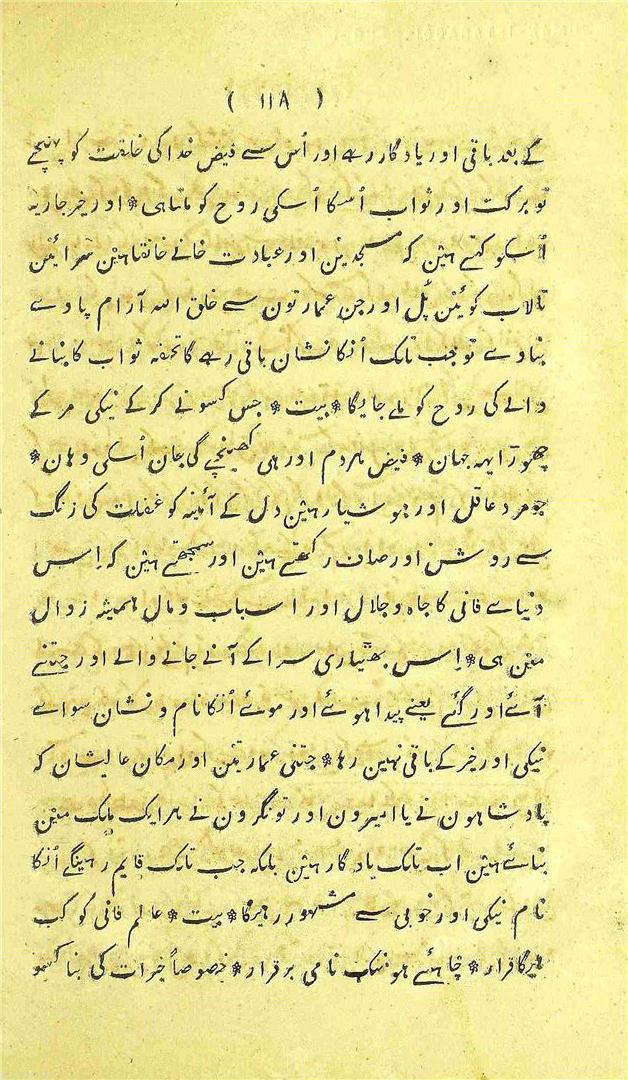 ( ١١٨ )
کے بعد باقی اور یادگار رہے اور اُس سے فیض خدا کی خلقت کو پہنچے
تو برکت اور ثواب اُسکا اُسکی روح کو ملتا ہی * اور خیر جاریہ
اُسکو کہتے ہیں کہ مسجدین اور عبادت خانے خانقاہیں سرائیں
تالاب کوئیں پُل اور جن عمارتوں سے خلق اللہ آرام پاوے
بناوے تو جب تلک اُنکا نشان باقی رہے گا تحفہ ثواب کا بنانے
والے کی روح کو ملے جایگا * بیت * جس کسو نے کرکے نیکی مر کے
چھوڑا یہہ جہان * فیض ہردم اور ہی کھینچے گی جان اُسکی وہان *
جو مرد عاقل اور ہوشیار ہیں دل کے آئینہ کو غفلت کی زنگ
سے روشن اور صاف رکھتے ہیں اور سمجھتے ہیں کہ اِس
دنیاے فانی کا جاہ و جلال اور اسباب و مال ہمیشہ زوال
میں ہی * اِس بھٹیاری سرا کے آنے جانے والے اور جتنے
آئے اور گئے یعنے پیدا ہوئے اور موئے اُنکا نام و نشان سواے
نیکی اور خیر کے باقی نہیں رہا * جتنی عمارتیں اور مکان عالیشان کہ
پادشاہون نے یا امیرون اور تونگرون نے ہر ایک ملک میں
بنائے ہیں اب تلک یادگار ہیں بلکہ جب تلک قایم رہینگے اُنکا
نام نیکی اور خوبی سے مشہور رہیگا * بیت * عالم فانی کو کب
ہیگا قرار * چاہئے ہو نیک نامی برقرار * خصوصاً خیرات کی بنا کسو